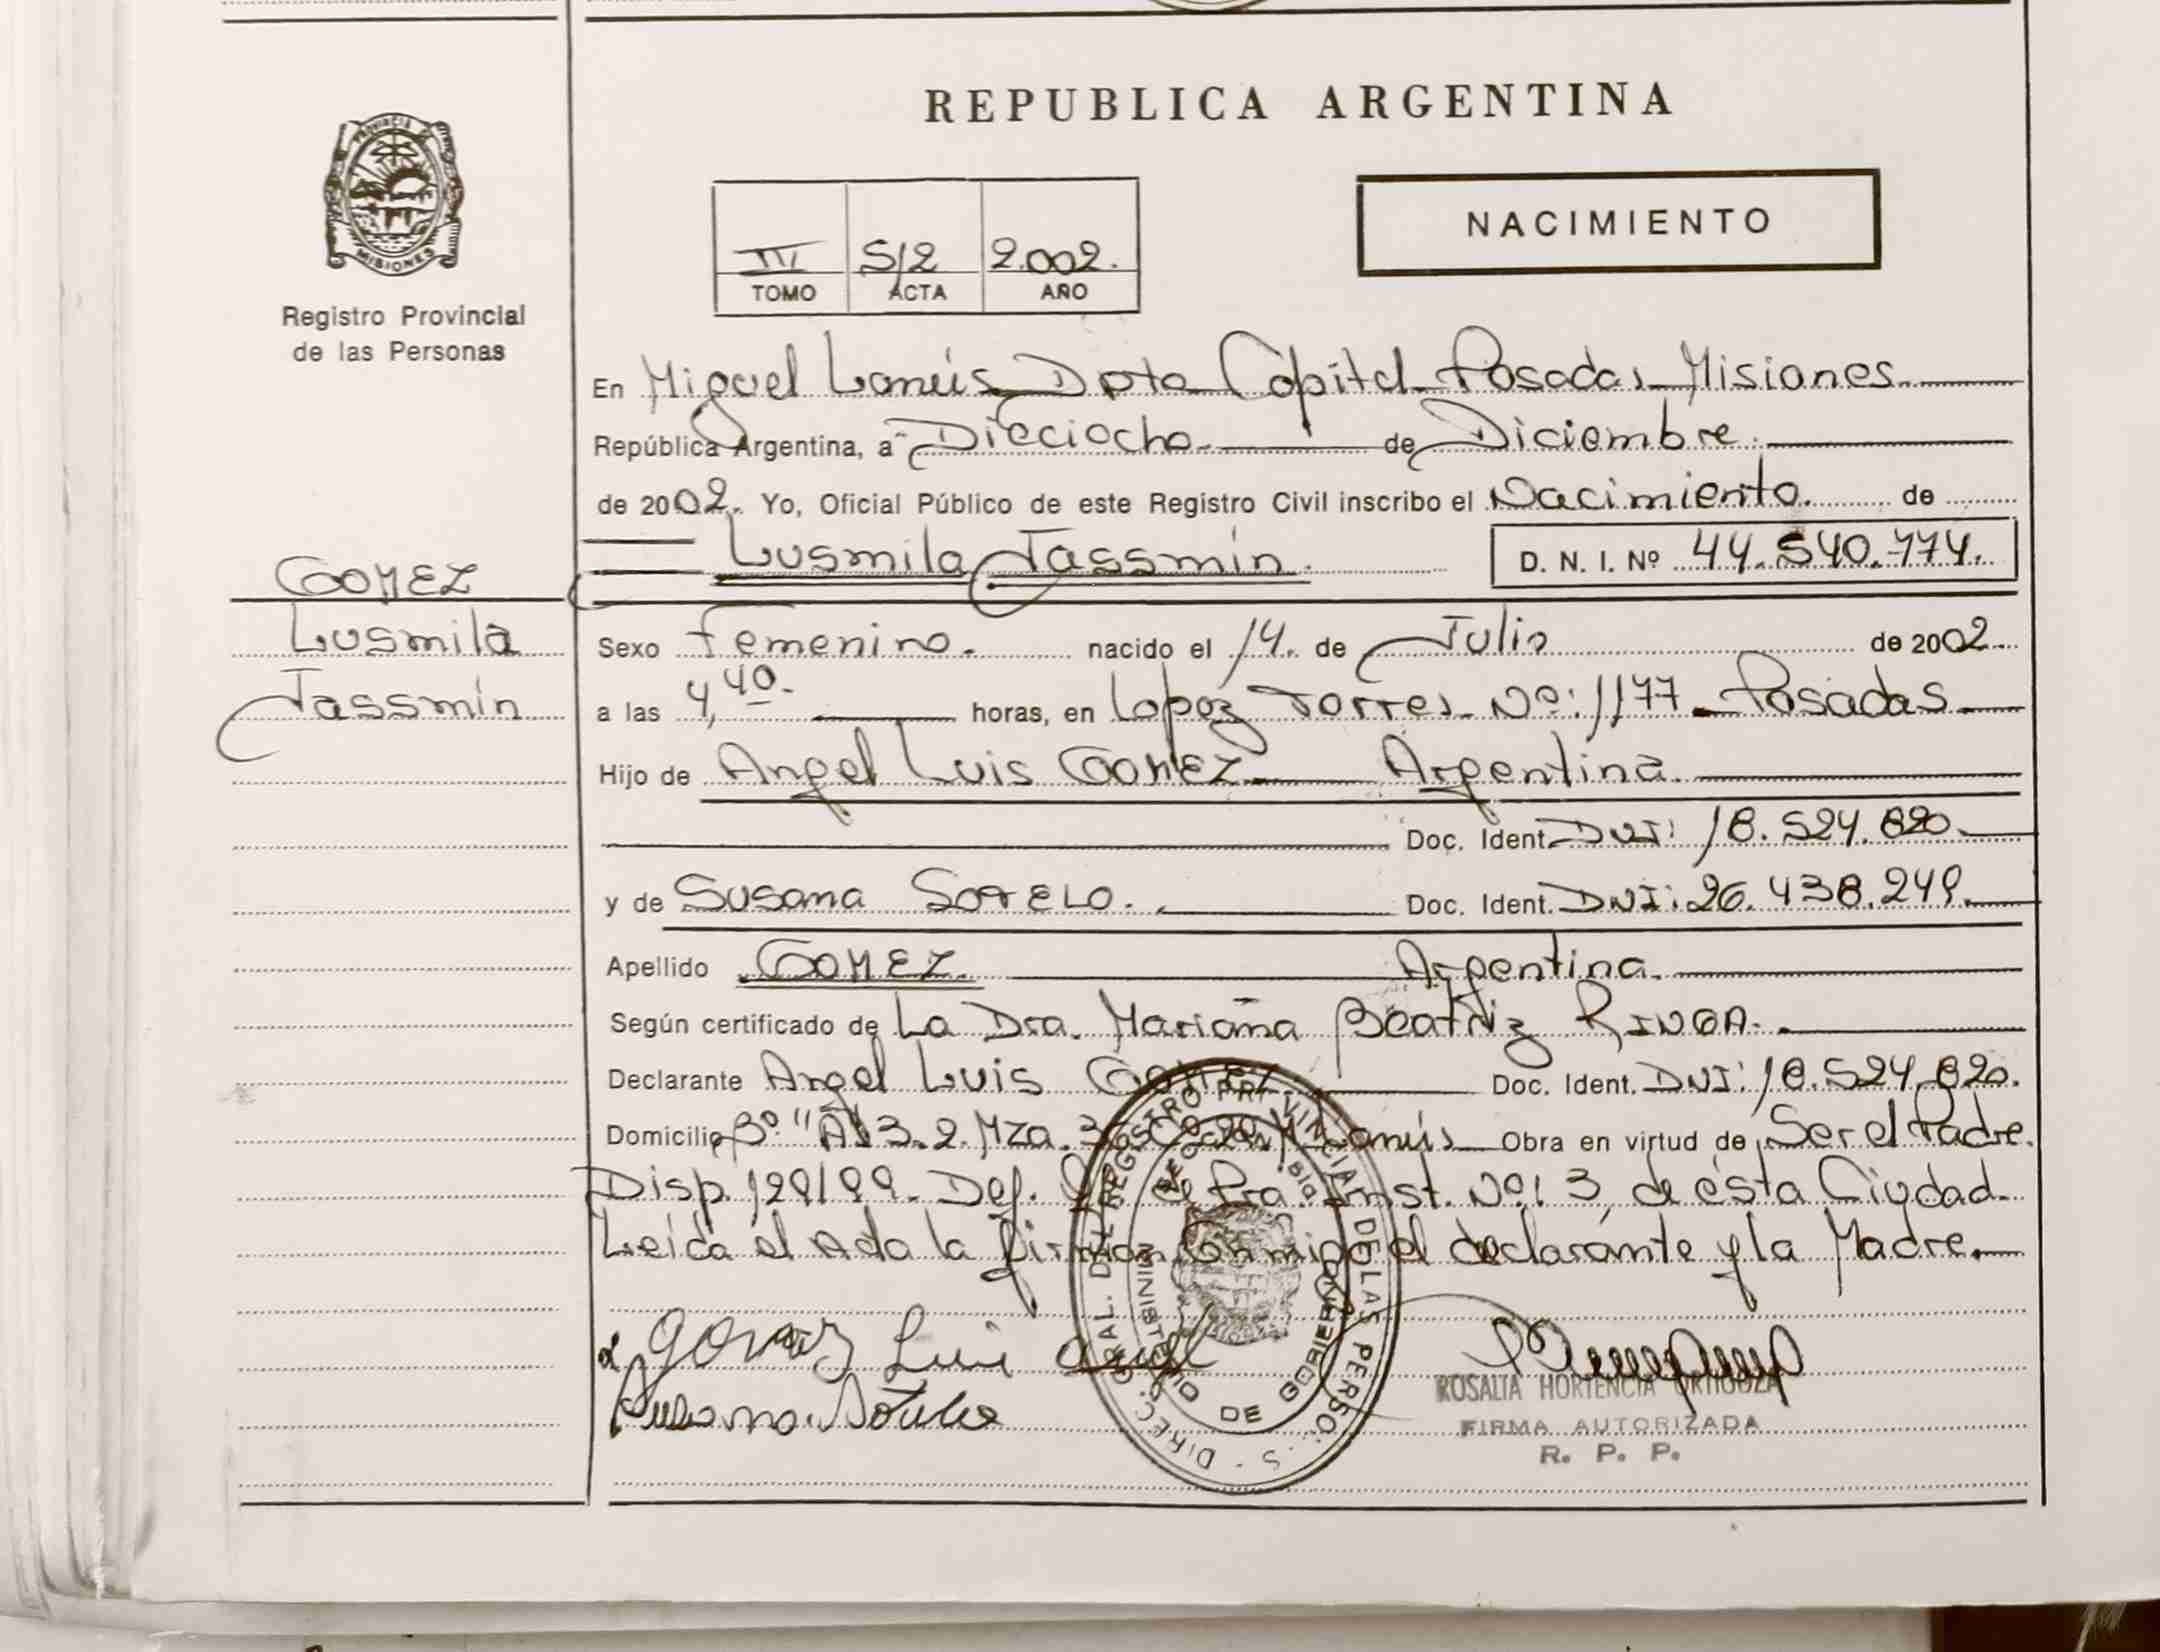 REPUBLICA ARGENTINA
PROVINCIA DE
MISIONES
Registro Provincial
de las Personas
NACIMIENTO
III 512 2.002.
TOMO ACTA AÑO
En Miguel Lanús Dpto Capital Posadas Misiones
República Argentina, a Dieciocho de Diciembre.
de 2002. Yo, Oficial Público de este Registro Civil inscribo el Nacimiento. de
Lusmila Jassmín. D. N. I. Nº 44.540.774.
GOMEZ
Lusmila
Jassmín
Sexo Femenino. nacido el 14. de Julio de 2002
a las 4,40. horas, en Lopez Torres Nº: 1177 Posadas
Hijo de Angel Luis GOMEZ Argentina.
Doc. Ident. DNI: 18.524.820.
y de Susana SOTELO. Doc. Ident. DNI: 26.438.249.
Apellido GOMEZ. Argentina.
Según certificado de La Dra. Mariana Beatriz RINGA.
Declarante Angel Luis GOMEZ Doc. Ident. DNI: 18.524.820.
Domicilio Bº "A 3.2. Mza. Lanús Obra en virtud de Ser el Padre.
Disp. 129/99. Def. de Pra. Inst. Nº: 3, de ésta Ciudad.
Leída el Acta la firman Conmigo el declarante y la Madre.
Gomez Luis Angel
Susana Sotelo
DIREC. GRAL. DEL REGISTRO PROVINCIAL DE LAS PERSONAS
MINISTERIO DE GOBIERNO
ROSALIA HORTENCIA ORTIGOZA
FIRMA AUTORIZADA
R. P. P.